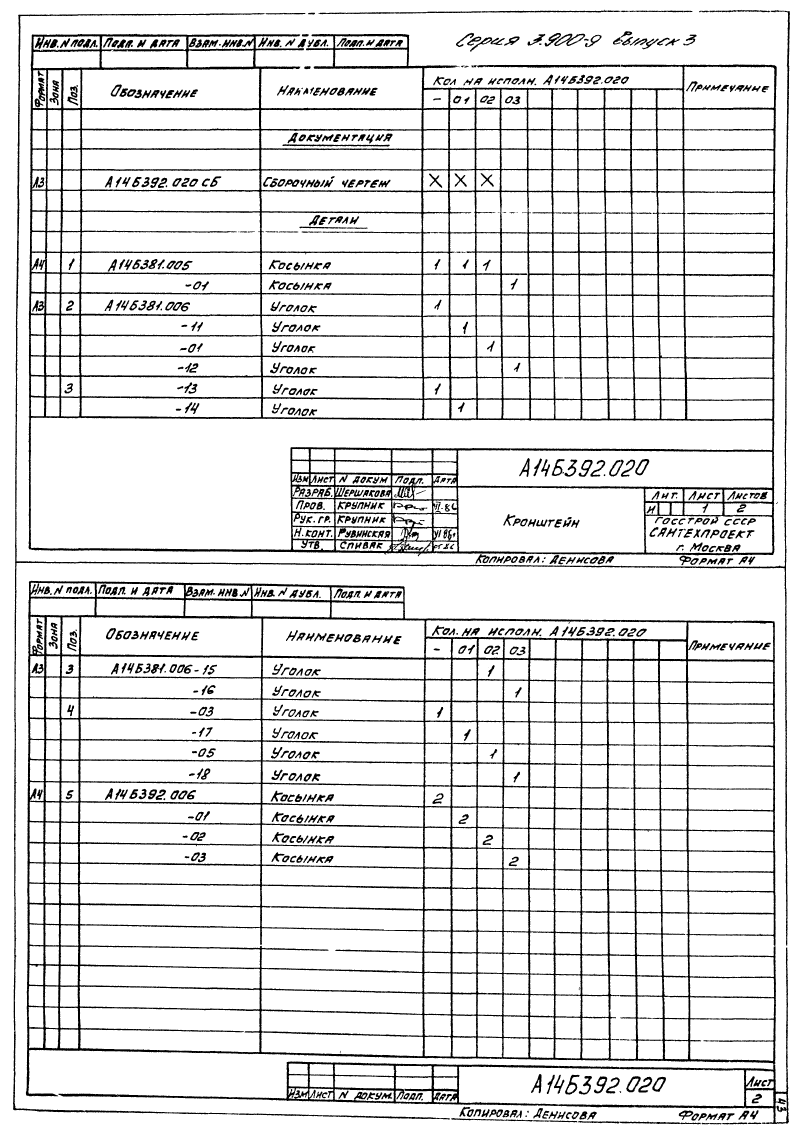 Серия 3.900-9 выпуск 3
Инв. N подл. Подп. и дата Взам. инв. N Инв. N дубл. Подп. и дата
Формат Зона Поз. Обозначение Наименование Кол. на исполн. А14Б392.020 Примечание
- 01 02 03
Документация
А3 А14Б392.020 СБ Сборочный чертеж X X X
Детали
А4 1 А14Б381.005 Косынка 1 1 1
-01 Косынка 1
А3 2 А14Б381.006 Уголок 1
-11 Уголок 1
-01 Уголок 1
-12 Уголок 1
3 -13 Уголок 1
-14 Уголок 1
Изм Лист N докум Подп. Дата
А14Б392.020
Разраб. Шершакова
Пров. Крупник
Рук. гр. Крупник
Н. конт. Рувинская
Утв. Спивак
Кронштейн
Лит. Лист Листов
И 1 2
Госстрой СССР
Сантехпроект
г. Москва
Копировал: Денисова Формат А4
Инв. N подл. Подп. и дата Взам. инв. N Инв. N дубл. Подп. и дата
Формат Зона Поз. Обозначение Наименование Кол. на исполн. А14Б392.020 Примечание
- 01 02 03
А3 3 А14Б381.006-15 Уголок 1
-16 Уголок 1
4 -03 Уголок 1
-17 Уголок 1
-05 Уголок 1
-18 Уголок 1
А4 5 А14Б392.006 Косынка 2
-01 Косынка 2
-02 Косынка 2
-03 Косынка 2
Изм Лист N докум. Подп. Дата
А14Б392.020
Лист
2
43
Копировал: Денисова Формат А4